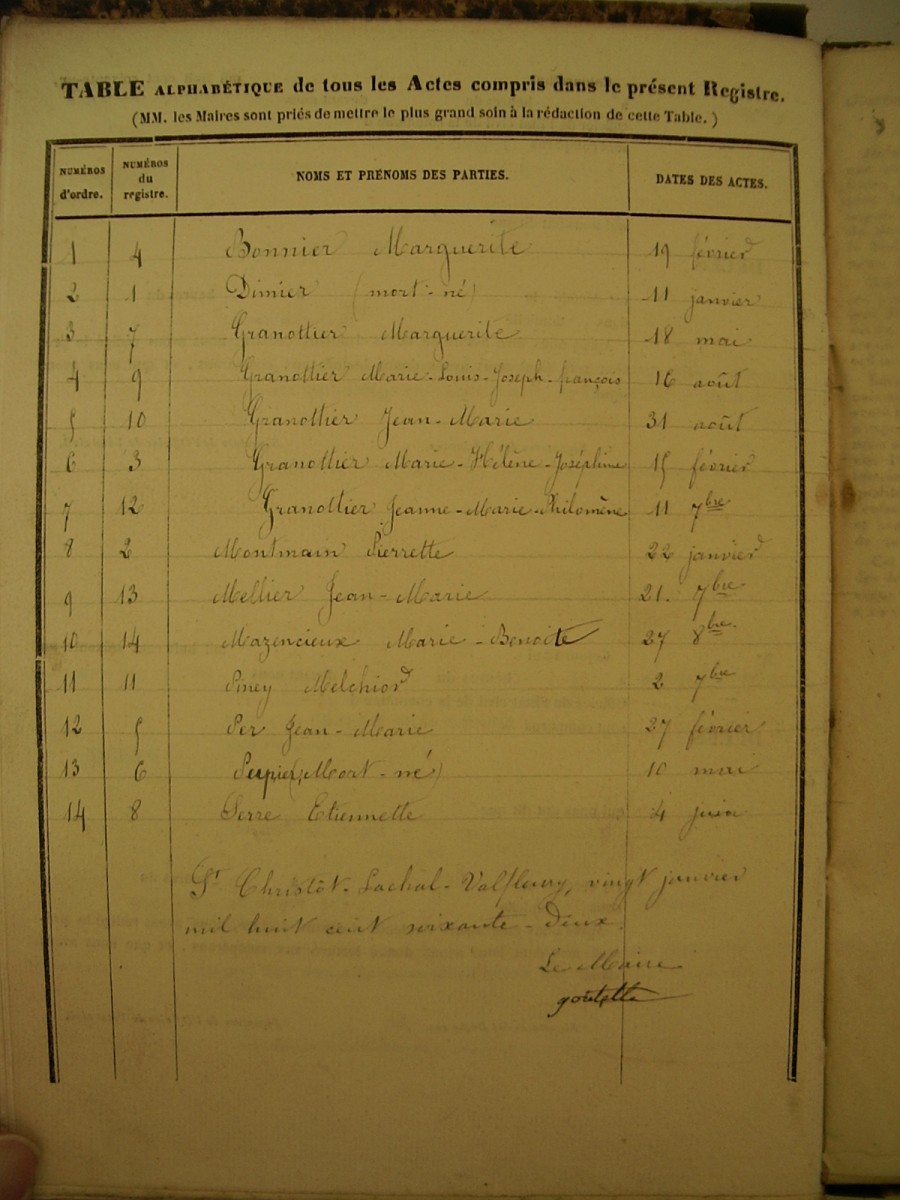 TABLE ALPHABÉTIQUE de tous les Actes compris dans le présent Registre.
(MM. les Maires sont priés de mettre le plus grand soin à la rédaction de cette Table.)
NUMÉROS d'ordre. NUMÉROS du registre. NOMS ET PRÉNOMS DES PARTIES. DATES DES ACTES.
1 4 Bonnier Marguerite 19 février
2 1 Dimier (mort-né) 11 janvier
3 7 Granottier Marguerite 18 mai
4 9 Granottier Marie-Louis-Joseph-françois 16 août
5 10 Granottier Jean-Marie 31 août
6 3 Granottier Marie-Hélène-Joséphine 15 février
7 12 Granottier Jeanne-Marie-Philomène 11 7bre
8 2 Montmain Pierrette 22 janvier
9 13 Mellier Jean-Marie 21. 7bre
10 14 Mazencieux Marie-Benoite 27 8bre.
11 11 Piney Melchior 2 7bre
12 5 Per Jean-Marie 27 février
13 6 (Mort-né) 10 mai
14 8 Serre Etiennette 4 juin
St Christôt-Lachal-Valfleury, vingt janvier
mil huit cent soixante-deux.
Le Maire